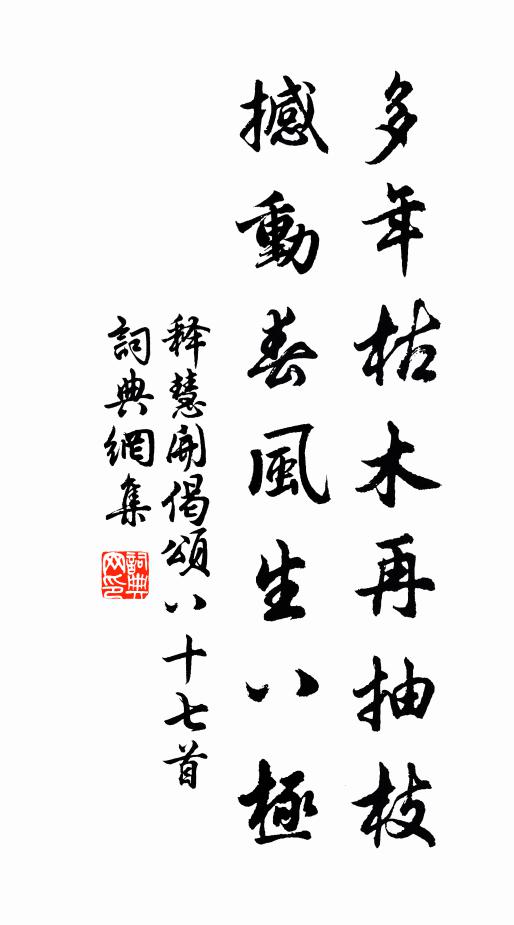 多年枯木再抽枝
撼動春風生八極
释慧開偈頌八十七首
詞典網集
詞典网印